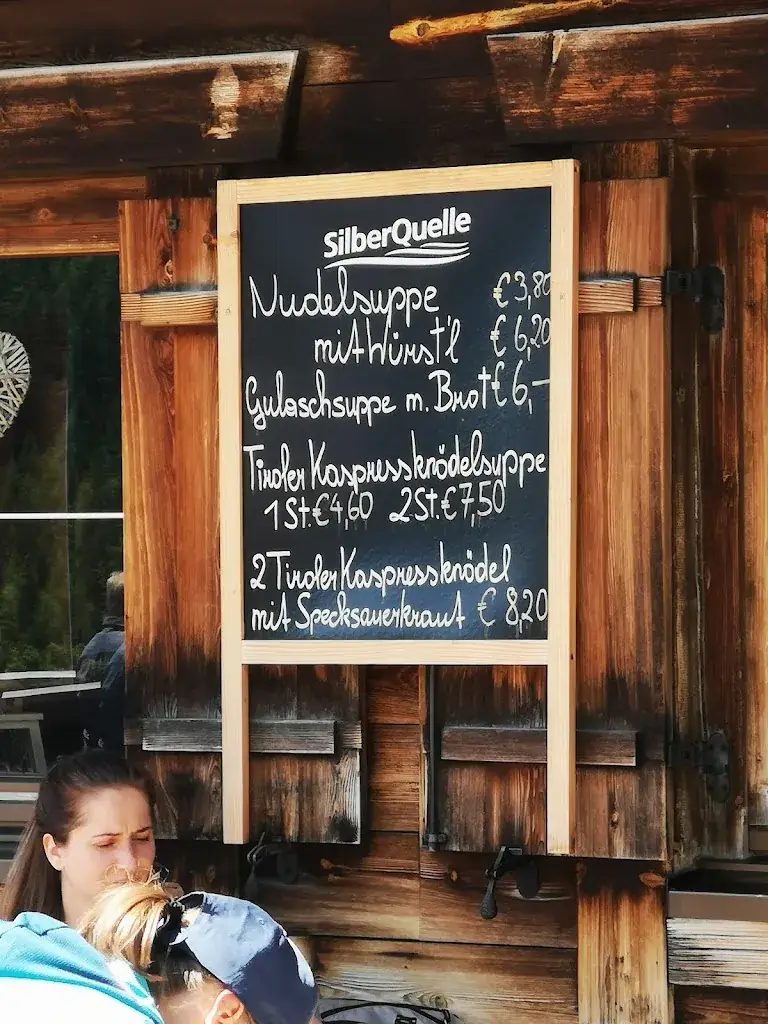 SilberQuelle
Nudelsuppe €3,80
mit Würst'l € 6,20
Gulaschsuppe m. Brot € 6,-
Tiroler Kaspressknödelsuppe
1 St. €4,60 2 St. €7,50
2 Tiroler Kaspressknödel
mit Specksauerkraut € 8,20